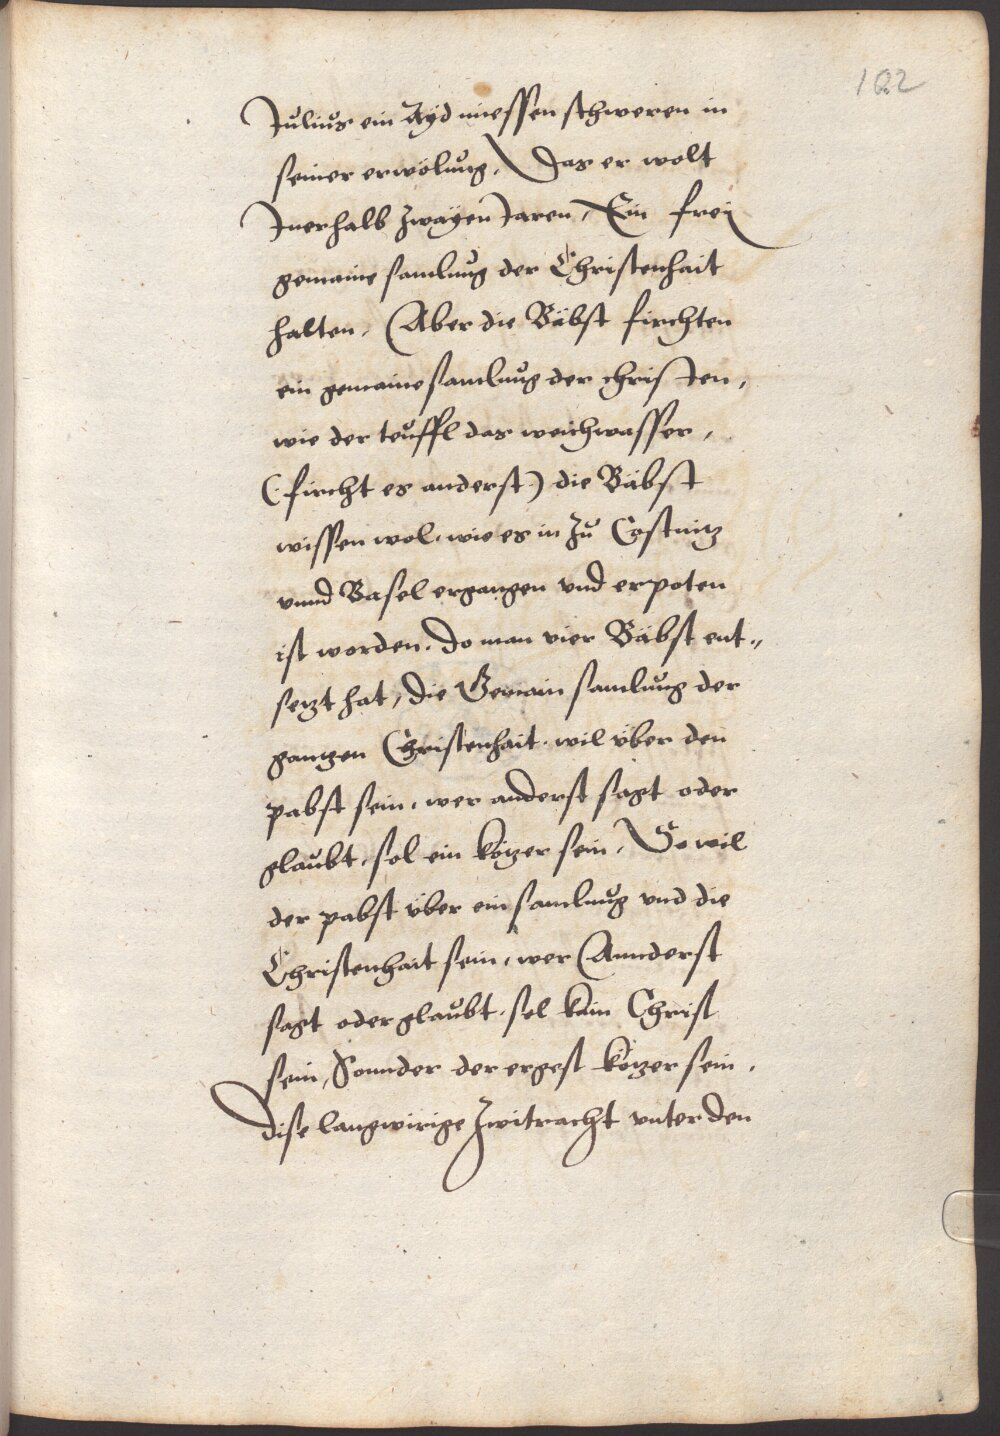 102
Julius ein Ayd miessen schweren in
seiner erwölung, Das er wolt
Inerhalb zwayen Jaren, Ein frei
gemaine samlung der Christenhait
halten, Aber die Bäbst firchten
ein gemaine samlung der christen,
wie der teuffl das weichwasser,
(fircht es anderst) die Bäbst
wissen wol, wie es in zu Costnitz
vnnd Basel ergangen vnd erpoten
ist worden, do man vier Bäbst ent„
setzt hat, die Gemain samlung der
gantzen Christenhait, wil über den
pabst sein, wer anderst sagt oder
glaubt, sol ein kötzer sein, So wil
der pabst über ein samlung vnd die
Christenhait sein, wer Annderst
sagt oder glaubt, sol kain Christ
sein, Sonnder der ergest kötzer sein,
dise langwirige Zwitracht vnter den